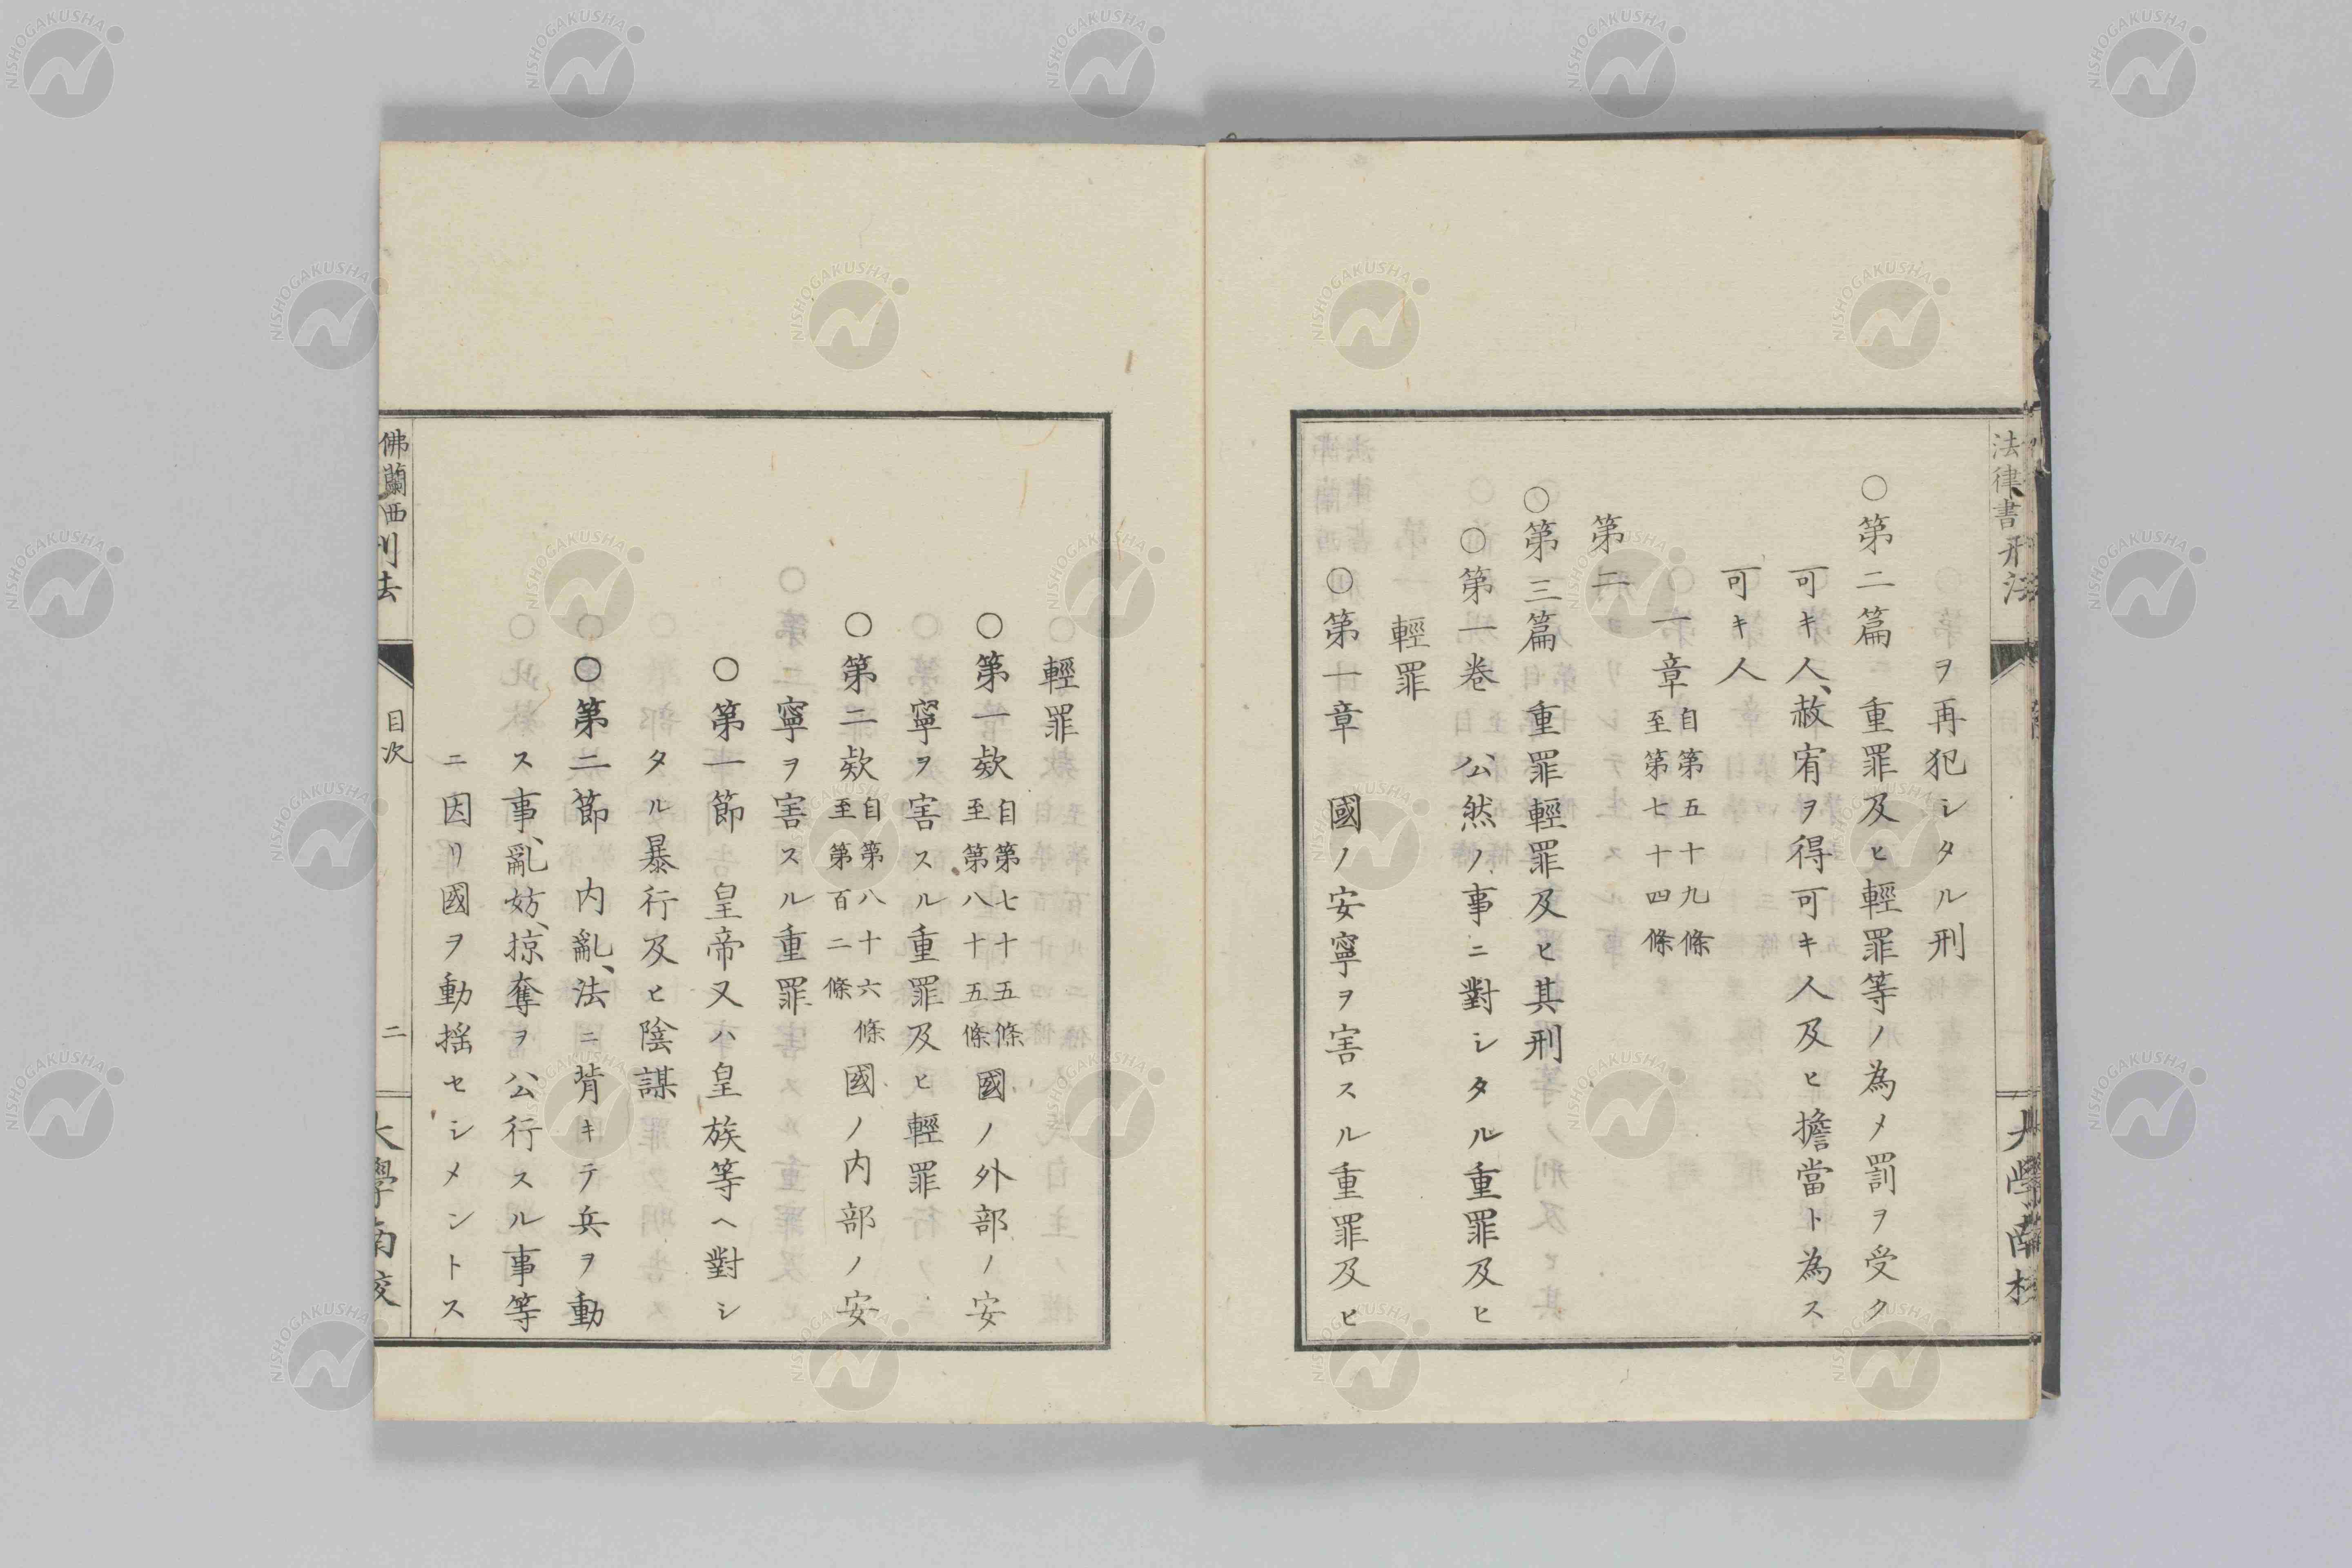 法律書 刑法
ヲ再犯シタル刑
○第二篇 重罪及ヒ輕罪等ノ為メ罰ヲ受ク
可キ人、赦宥ヲ得可キ人及ヒ擔當ト為ス
可キ人
一章 自第五十九條 至第七十四條
第二
○第三篇 重罪輕罪及ヒ其刑
○第一卷 公然ノ事ニ對シタル重罪及ヒ
輕罪
○第一章 國ノ安寧ヲ害スル重罪及ヒ
輕罪
○第一欵 自第七十五條 至第八十五條 國ノ外部ノ安
寧ヲ害スル重罪及ヒ輕罪
○第二欵 自第八十六條 至第百二條 國ノ内部ノ安
寧ヲ害スル重罪
○第一節 皇帝又ハ皇族等ヘ對シ
タル暴行及ヒ陰謀
○第二節 内亂、法ニ背キテ兵ヲ動
ス事、亂妨、掠奪ヲ公行スル事等
ニ因リ國ヲ動揺セシメントス
佛蘭西刑法
目次
二
大學南校
大學南校
NISHOGAKUSHA